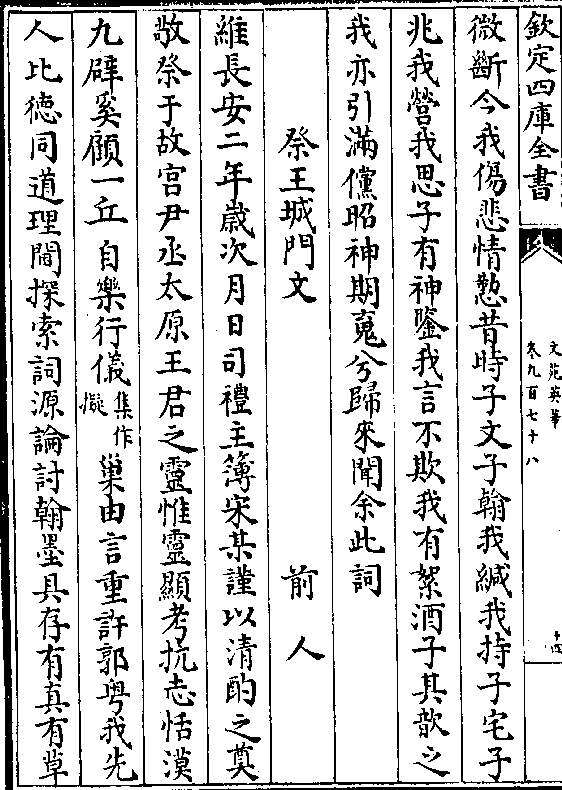 欽定四庫全書
文苑英華
卷九百七十八
十四
微斷今我傷悲情懃昔時子文子翰我緘我持子宅子
兆我營我思子有神鑒我言不欺我有絮酒子其歆之
我亦引滿儻昭神期䰟兮歸來聞余此詞
祭王城門文 前人
維長安二年歳次月日司禮主簿宋某謹以清酌之奠
敬祭于故宫尹丞太原王君之靈惟靈顯考抗志恬漠
九辟奚顧一丘自樂行儀集作擬巢由言重許郭粤我先
人比徳同道理閫探索詞源論討翰墨具存有真有草